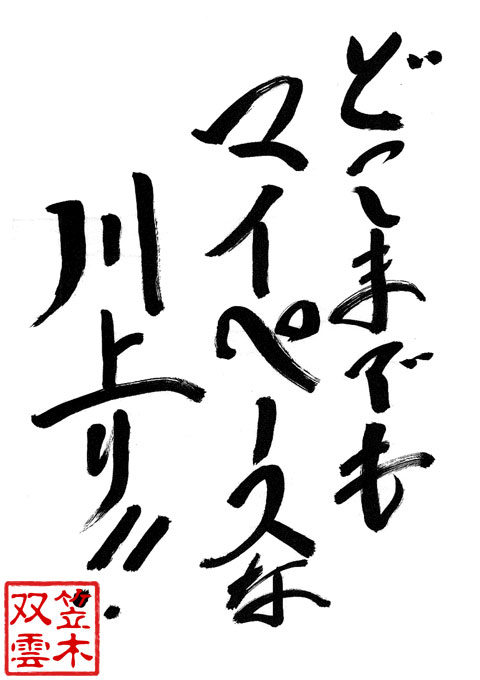 どこまでも
マイペースな
川上り!!
笠木
双雲